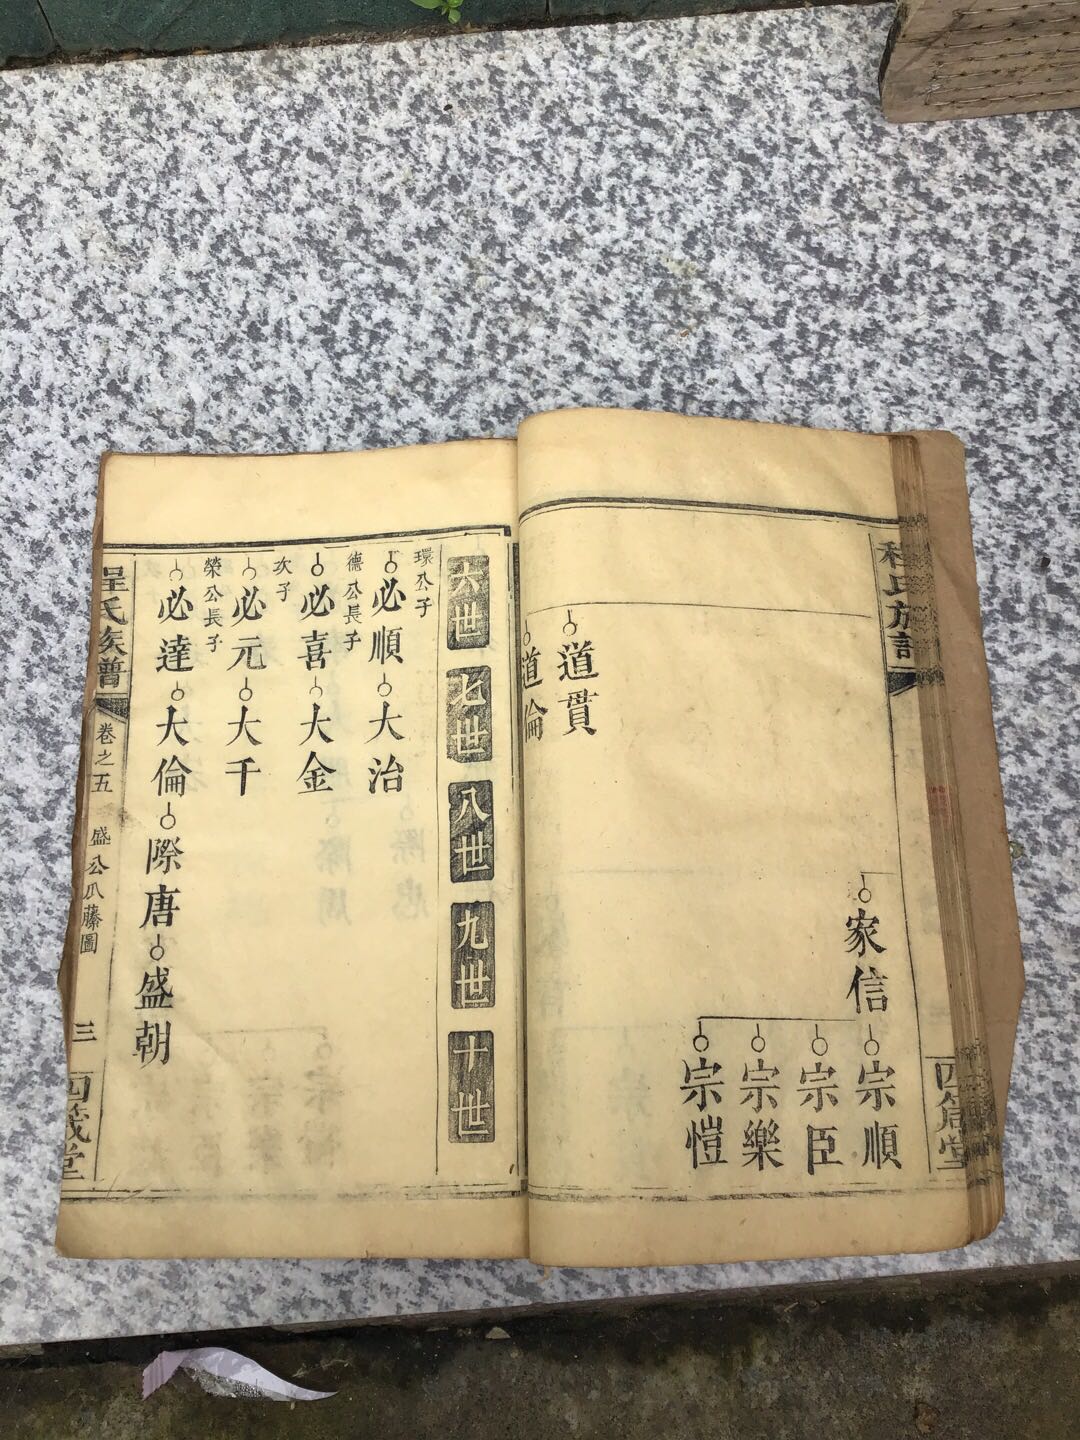 程氏族譜
四箴堂
家信 宗順
宗臣
宗樂
宗愷
道貫
道倫
六世 七世 八世 九世 十世
環公子
必順 大治
德公長子
必喜 大金
次子
必元 大千
榮公長子
必達 大倫 際唐 盛朝
程氏族譜
卷之五
盛公瓜藤圖
三
四箴堂